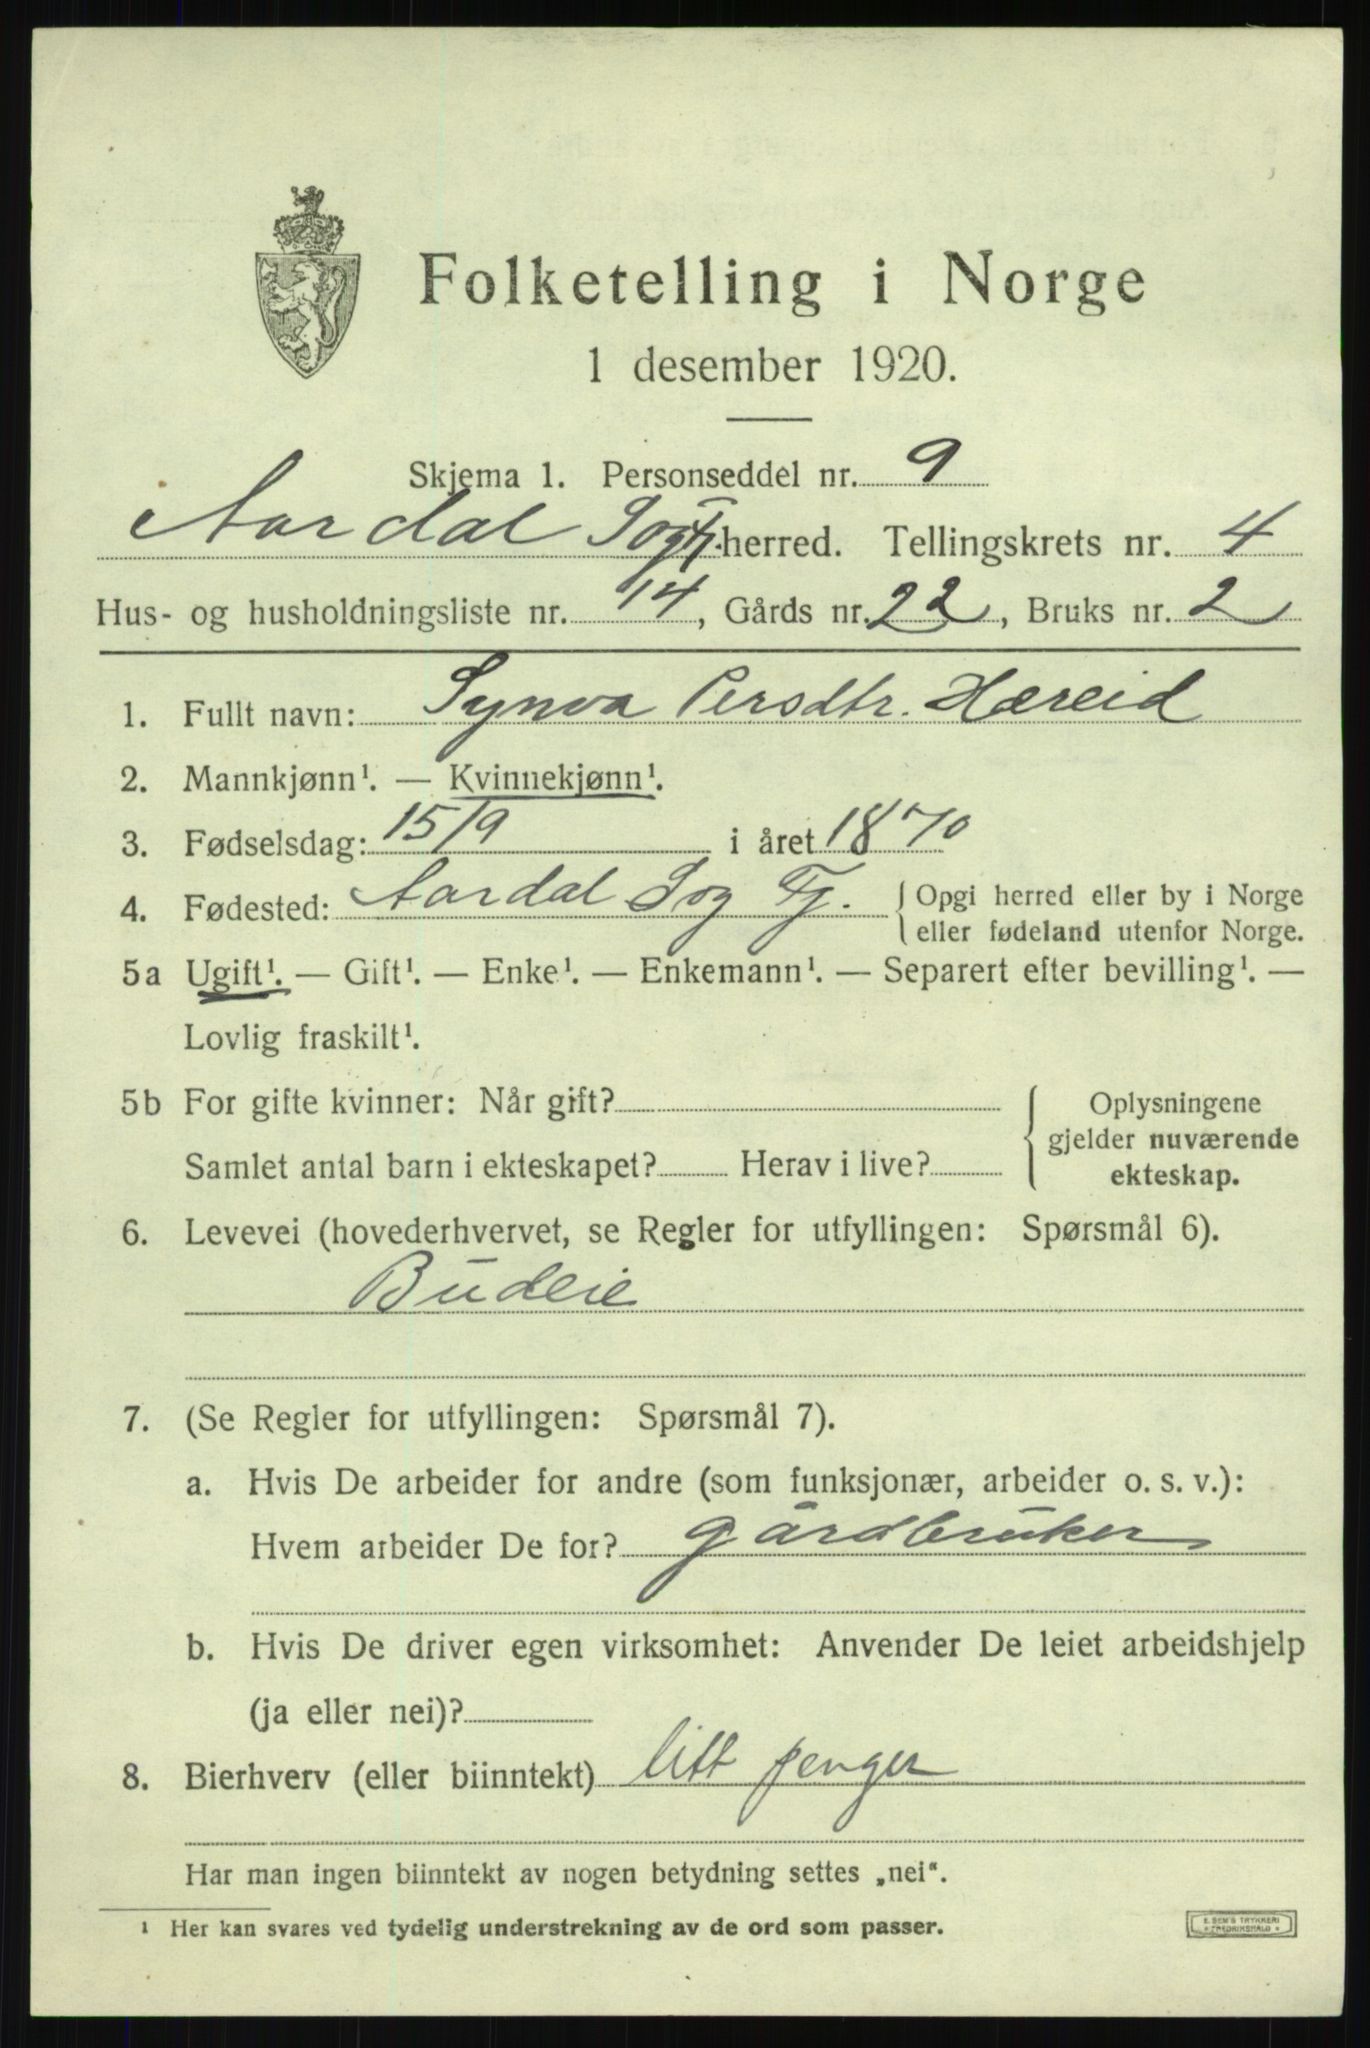 Folketelling i Norge
1 desember 1920.
Skjema 1. Personseddel nr. 9
Aardal Sogn herred. Tellingskrets nr. 4
Hus- og husholdningsliste nr. 14, Gårds nr. 22, Bruks nr. 2
1. Fullt navn: Synva Persdtr. Hæreid
2. Mannkjønn¹. — Kvinnekjønn¹.
3. Fødselsdag: 15/9 i året 1870
4. Fødested: Aardal Sog Fj. { Opgi herred eller by i Norge
eller fødeland utenfor Norge.
5a Ugift¹. — Gift¹. — Enke¹. — Enkemann¹. — Separert efter bevilling¹. —
Lovlig fraskilt¹.
5b For gifte kvinner: Når gift?
Samlet antal barn i ekteskapet? Herav i live?
Oplysningene
gjelder nuværende
ekteskap.
6. Levevei (hovederhvervet, se Regler for utfyllingen: Spørsmål 6).
Budeie
7. (Se Regler for utfyllingen: Spørsmål 7).
a. Hvis De arbeider for andre (som funksjonær, arbeider o. s. v.):
Hvem arbeider De for? gårdbruker
b. Hvis De driver egen virksomhet: Anvender De leiet arbeidshjelp
(ja eller nei)?
8. Bierhverv (eller biinntekt) litt penger
Har man ingen biinntekt av nogen betydning settes „nei“.
¹ Her kan svares ved tydelig understrekning av de ord som passer.
E. SEM'S TRYKKERI
FREDRIKSHALD